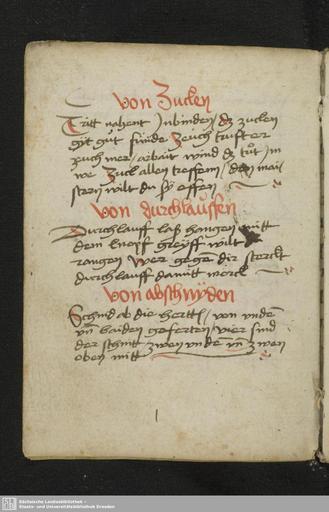 von Zucken
Tritt nahent Jn binden / dz zucken
gyt gut fünde Zeuch trifft er
zuch mer / arbait wind dz tut / im
we Zuck allen treffem / den mai
stern wilt du sy effen
von durchlauffen
Durchlauff laß hangen mitt
dem knopf greyff wilt
rangen Wer gege dir sterckt
durchlauff damitt merck
von abschnyden
Schnid ab die hertt / von unde
un baiden geferten / vier sind
der schnitt / zwen unden un zwen
oben mitt
Sächsische Landesbibliothek -
Staats- und Universitätsbibliothek Dresden